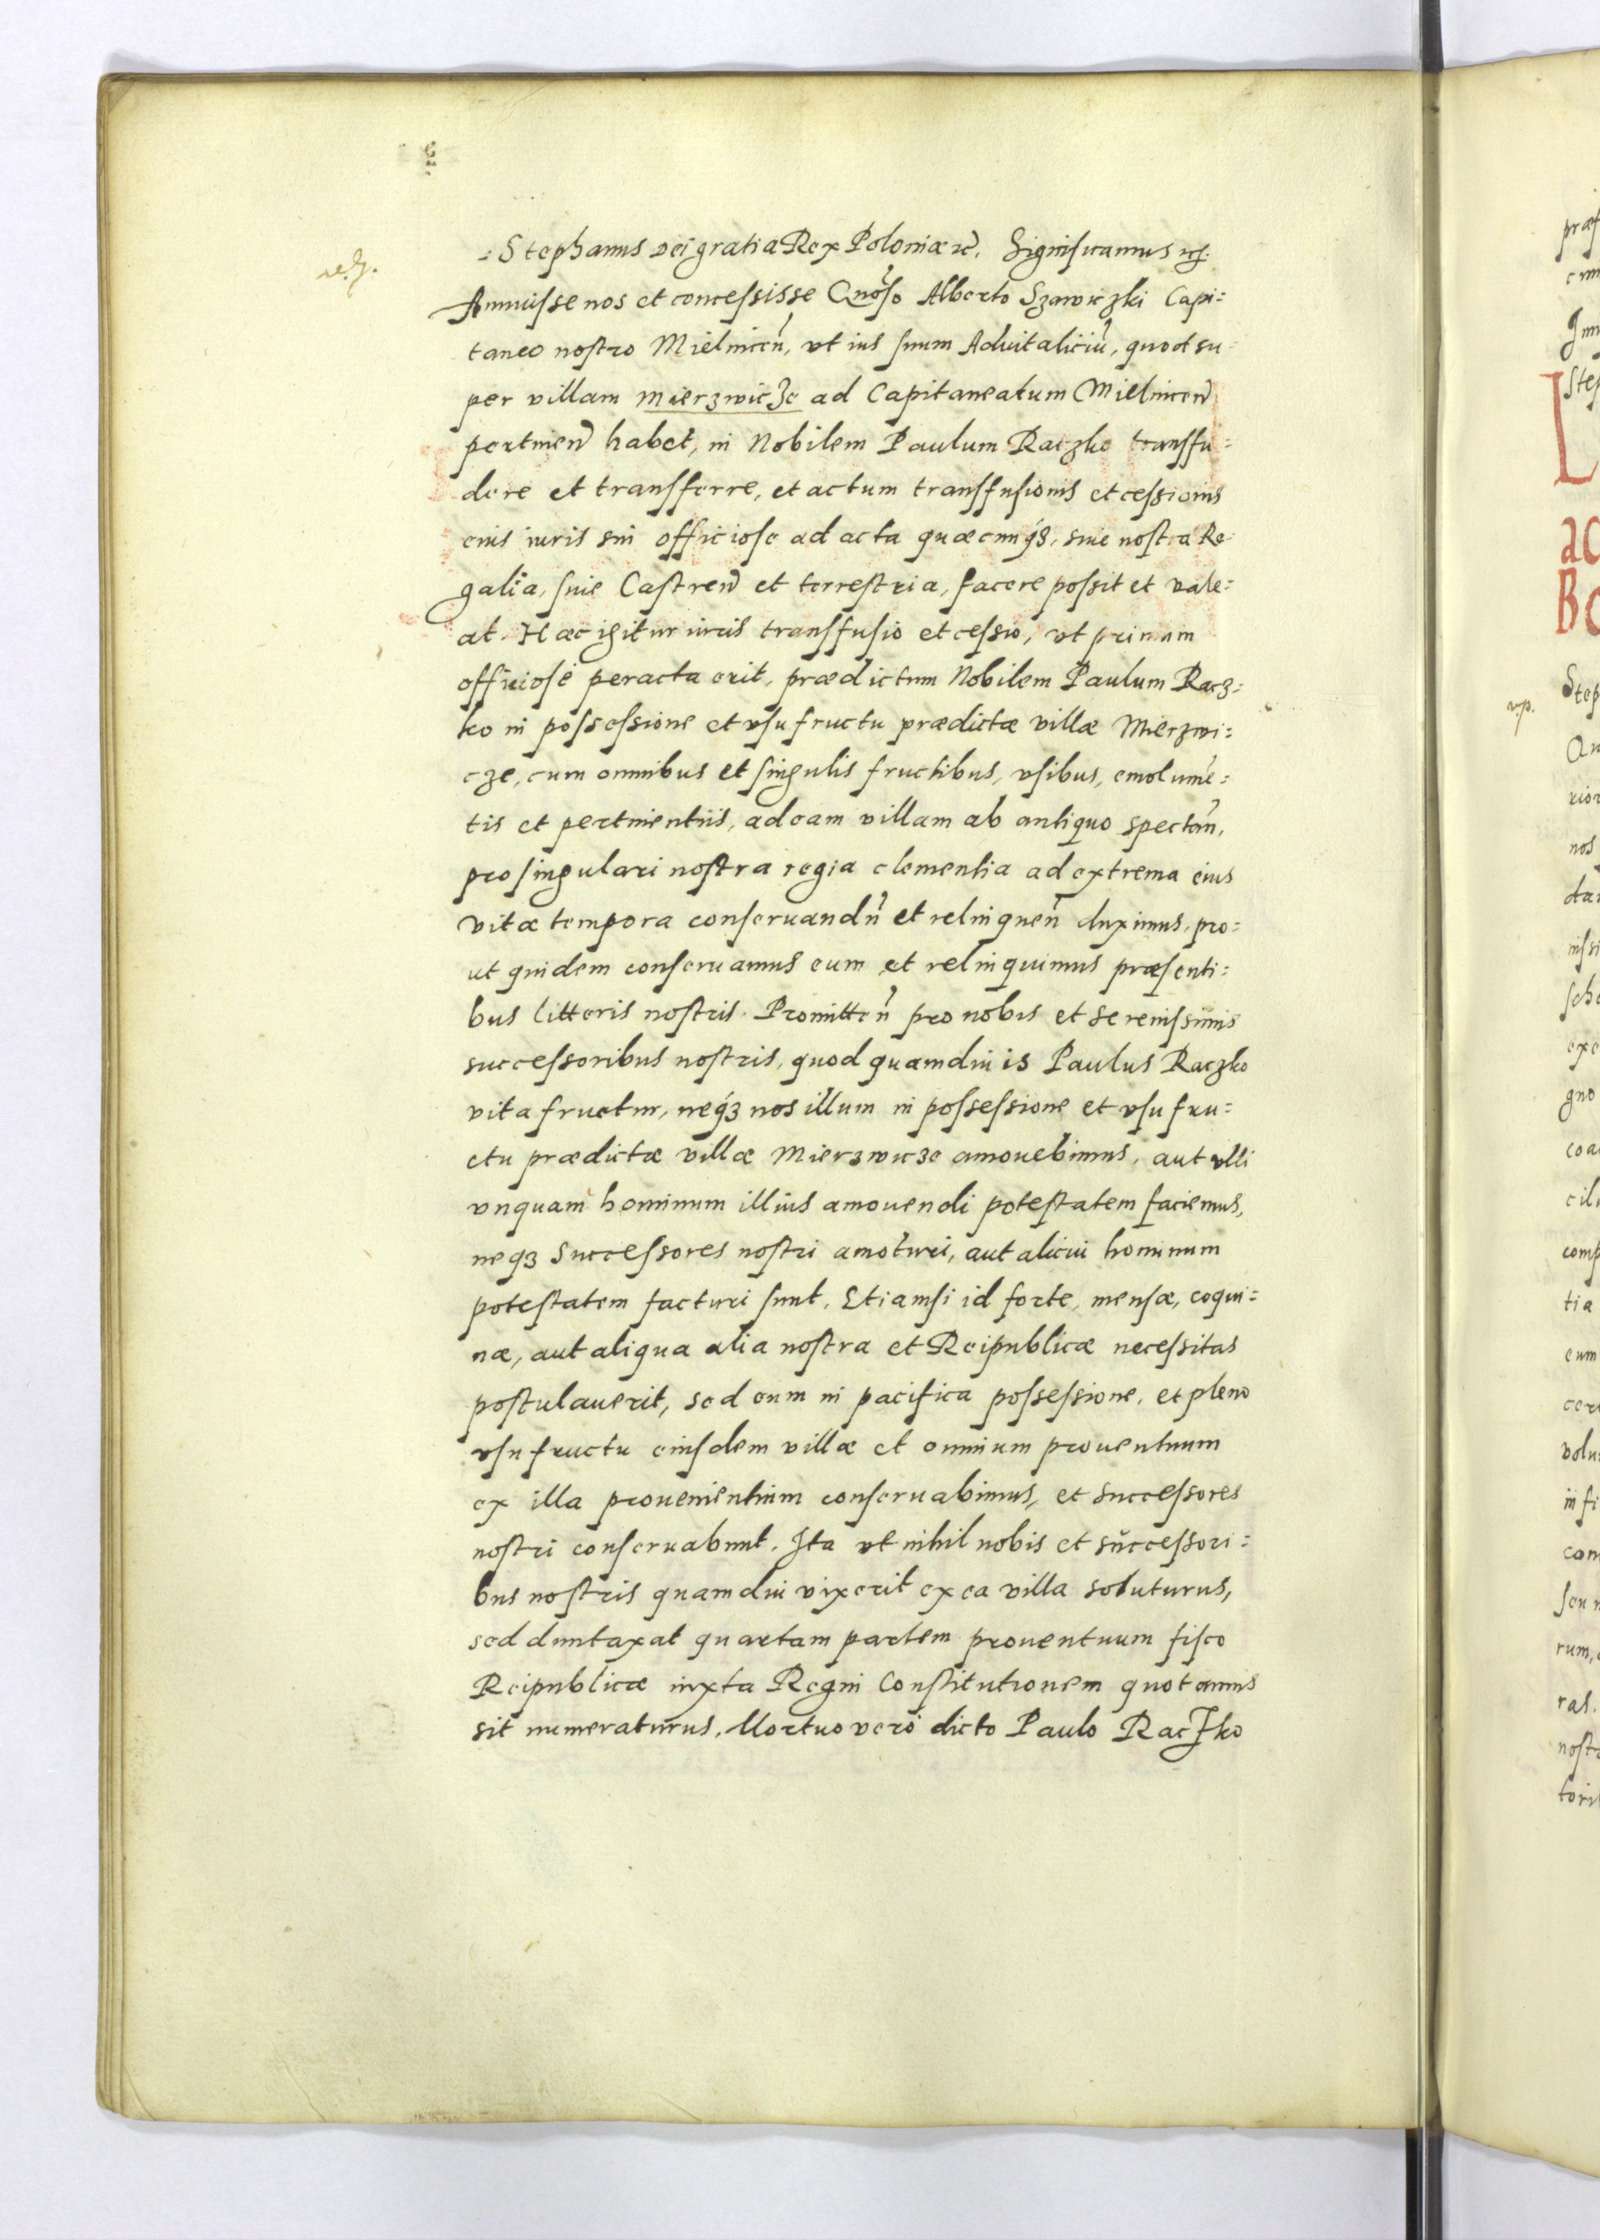 Stephanus Dei gratia Rex Poloniæ &c. Significamus &c.
Annuisse nos et concessisse Gnoso Alberto Szawiczki Capi=
taneo nostro Mielnicen, vt ius suum Aduitaliciu, quod su=
per villam Mierzwicze ad Capitaneatum Mielnicen
pertinen habet, in Nobilem Paulum Raczko transfu=
dere et transferre, et actum transfusionis et cessionis
eius iuris sui officiose ad acta quæcunq3, siue nostra Re
galia, siue Castren et terrestria, facere possit et vale=
at. Hæc igitur iuris transfusio et cessio, vt primum
officiosè peracta erit, prædictum Nobilem Paulum Racz=
ko in possessione et vsufructu prædictæ villæ Mierzwi=
cze, cum omnibus et singulis fructibus, vsibus, emolumē=
tis et pertinentiis, ad eam villam ab antiquo spectan,
pro singulari nostra regia clementia ad extrema eius
vitæ tempora conseruandn et relinquen duximus, pro=
ut quidem conseruamus eum et relinquimus præsenti=
bus litteris nostris. Promitten pro nobis et serenissimis
successoribus nostris, quod quamdiu is Paulus Raczko
vita fruetur, neq3 nos illum in possessione et vsu fru=
ctu prædictæ villæ Mierzwicze amouebimus, aut vlli
vnquam hominum illius amouendi potestatem faciemus,
neq3 Successores nostri amoturi, aut alicui hominum
potestatem facturi sunt. Etiamsi id forte, mensæ, coqui=
næ, aut aliqua alia nostra et Reipublicæ necessitas
postulauerit, sed eum in pacifica possessione, et pleno
vsufructu eiusdem villæ et omnium prouentuum
ex illa prouenientium conseruabimus, et successores
nostri conseruabunt. Ita vt nihil nobis et successori=
bus nostris quamdiu vixerit ex ea villa soluturus,
sed duntaxat quartam partem prouentuum fisco
Reipublicæ iuxta Regni Constitutionem quotannis
sit numeraturus. Mortuo verò dicto Paulo Raczko